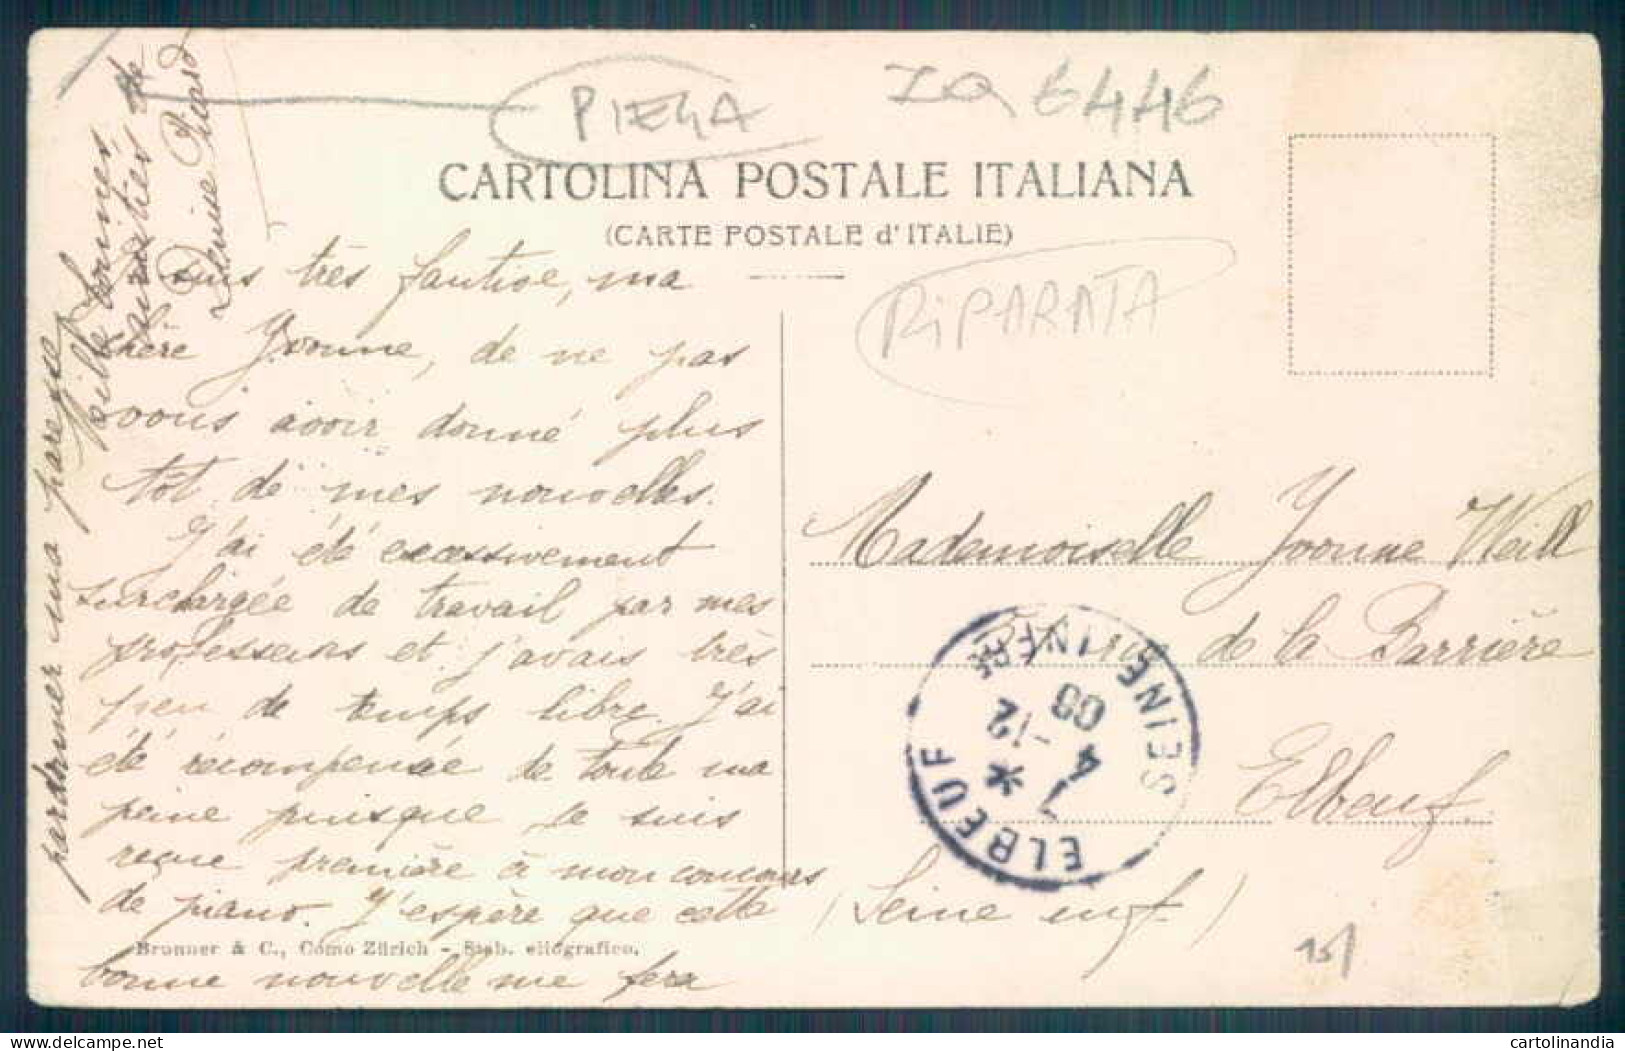 PIEGA
ZQ 6446
CARTOLINA POSTALE ITALIANA
(CARTE POSTALE d'ITALIE)
RiPARATA
suis très fautive, ma
chère Yvonne, de ne pas
vous avoir donné plus
tôt de mes nouvelles.
J'ai été excessivement
surchargée de travail par mes
professeurs et j'avais très
peu de temps libre. J'ai
été récompensée de toute ma
peine puisque je suis
reçue première à mon concours
de piano. J'espère que cette
bonne nouvelle me fera
pardonner ma paresse
Mille bonnes
amitiés de
Denise Picard
Brunner & C., Còmo Zürich - Stab. eliografico.
Mademoiselle Yvonne Weill
de la Barrière
Elbeuf.
(Seine inf.)
ELBEUF
SEINE INFRE
7 *
4 -12
08
15/
cartolinandia